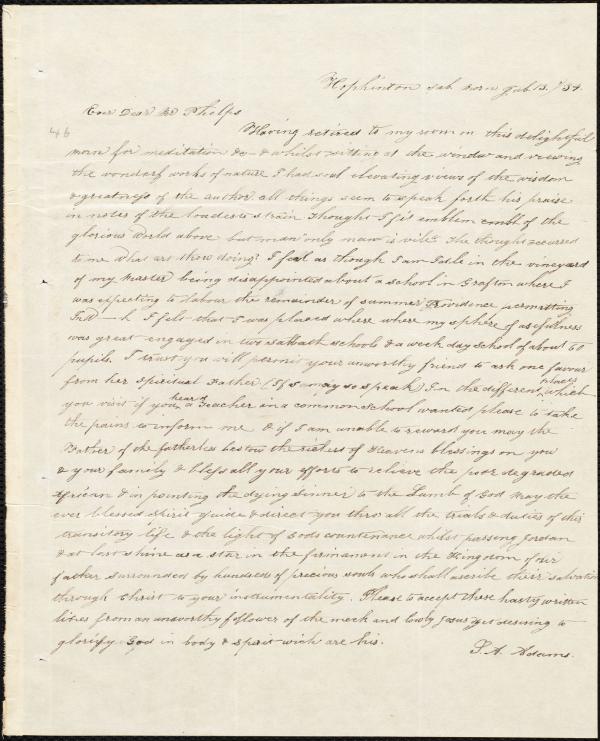 Hophinton sab morn July 13. /34.
Ever Dear Mr Phelps
46
Having retired to my room on this delightful
morn for meditation &c & whilst sitting at the window and viewing
the wonderf works of nature I had soul elevating views of the wisdom
& greatness of the author all things seem to speak forth his praise
in notes of the loudest strain thought I fit emblem embl of the
glorious world above but man "only man is vile" The thought occurred
to me what art thou doing? I feel as though I am Idle in the vineyard
of my Master being disappointed about a school in Grafton where I
was expecting to labour the remainder of summer Providence permitting
In W—h I felt that I was placed where where my sphere of usefulness
was great engaged in two sabbath schools & a week day school of about 50
pupils. I trust you will permit your unworthy friend to ask one favour
from her Spiritual Father (If I may so speak) In the different places which
you visit if you heard a Teacher in a common school wanted please to take
the pains to inform me & if I am unable to reward you may the
Father of the fatherless bestow the richest of Heavens blessings on you
& your family & bless all your efforts to relieve the poor degraded
African & in pointing the dying sinner to the Lamb of God May the
ever blessed Spirit guide & direct you thro all the trials & duties of this
transitory life & the light of Gods countenance whilst passing Jordan
& at last shine as a star in the firmament in the Kingdom of our
father surrounded by hundreds of precious souls who shall ascribe their salvation
through Christ to your instrumentality. Please to accept these hasty written
lines from an unworthy follower of the meek and lowly Jesus yet desiring to
glorify God in body & spirit wich are his.
S. A. Adams.